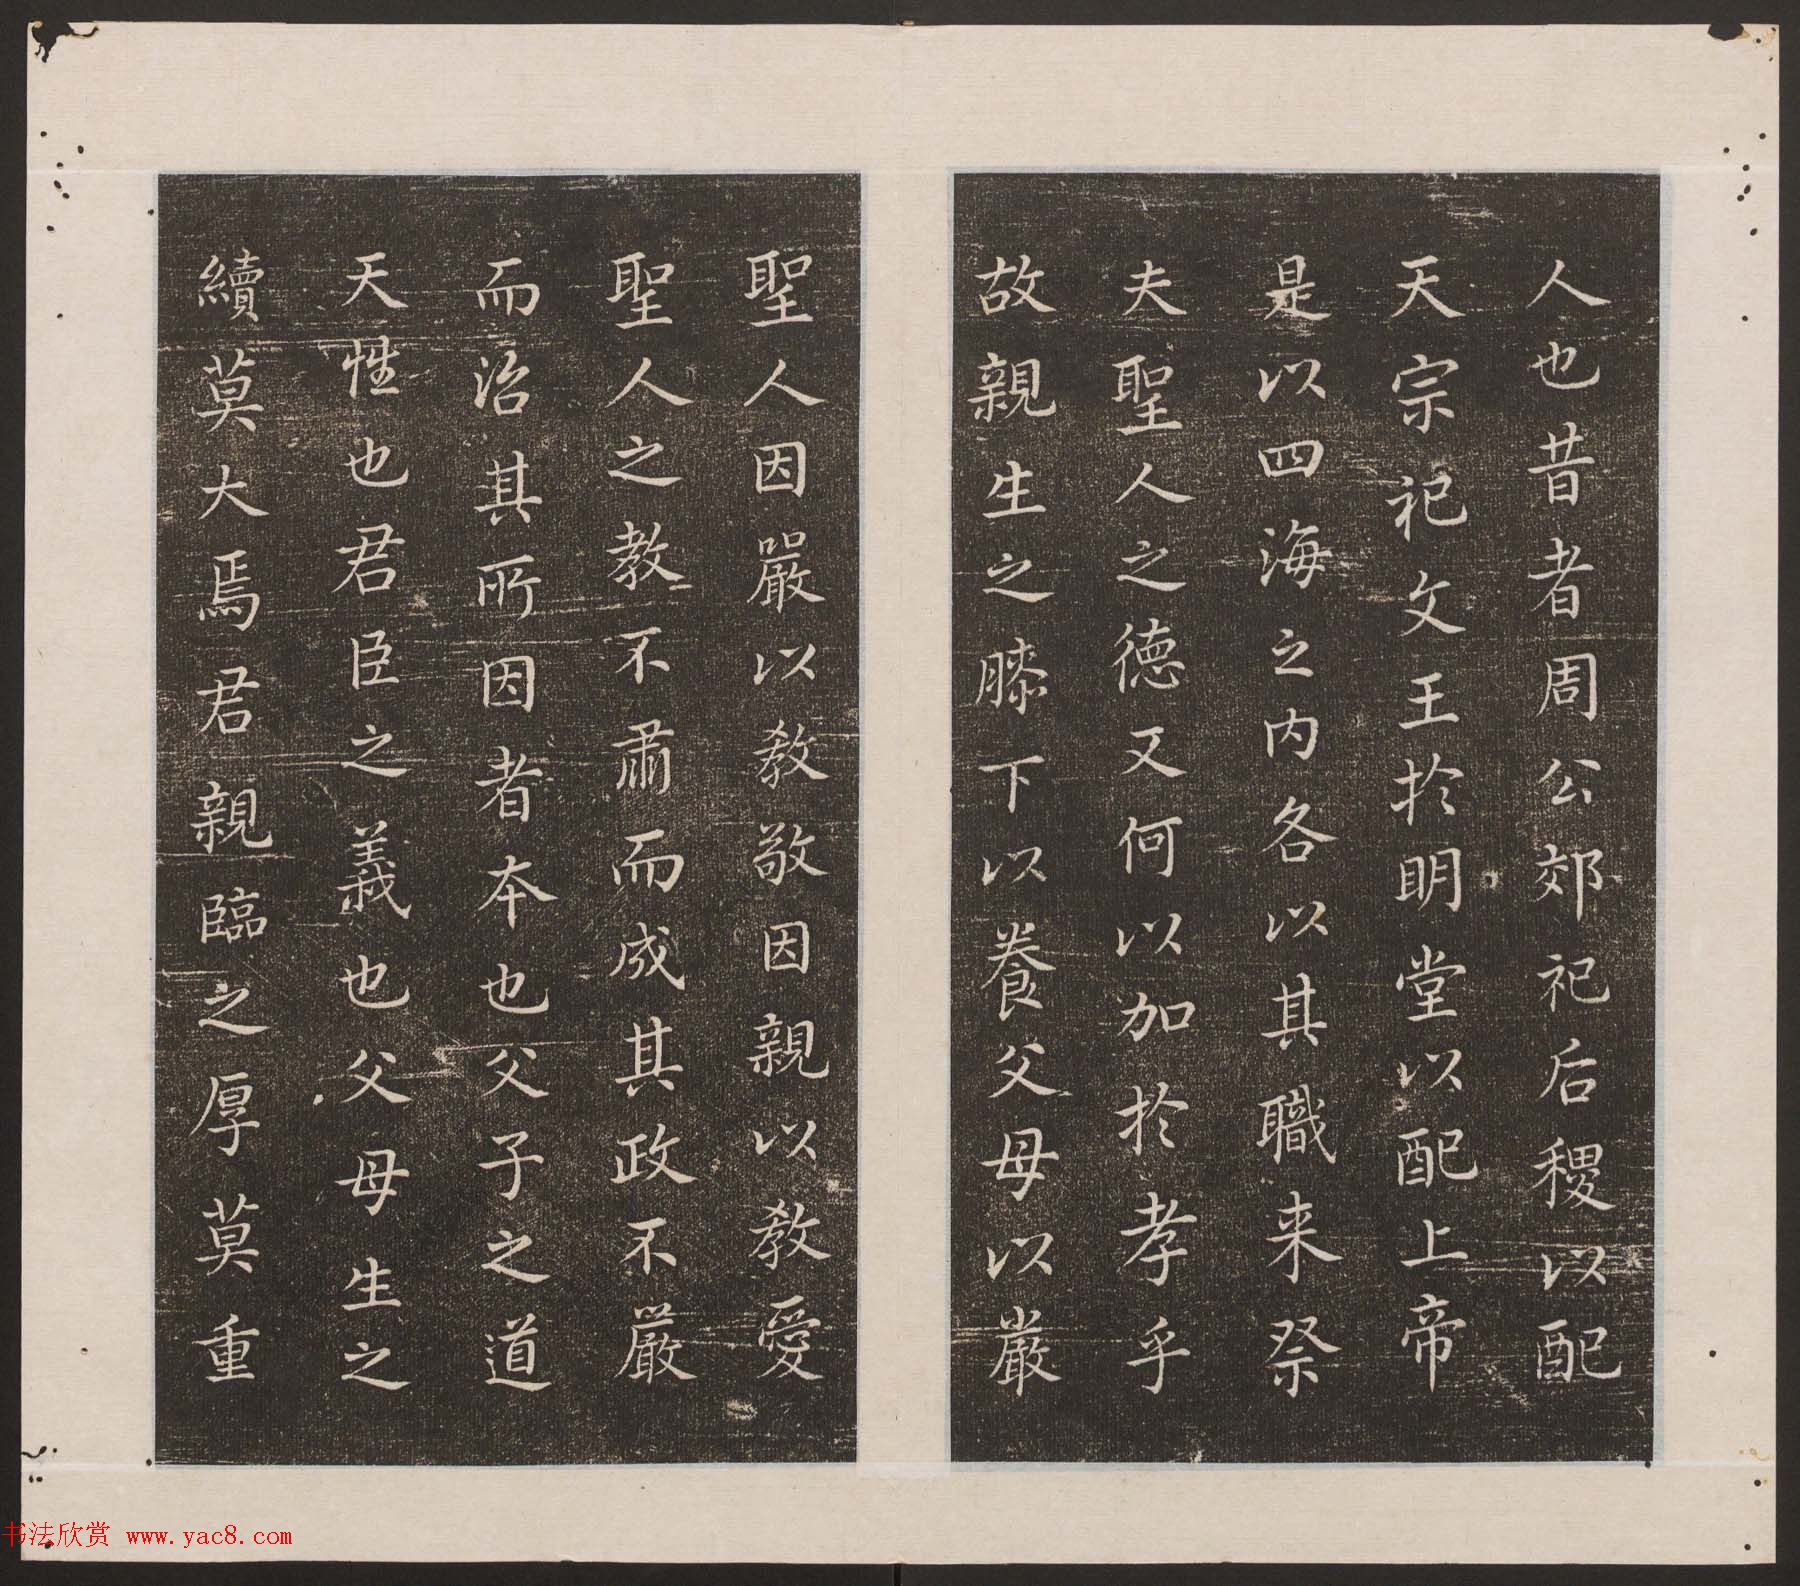 人也昔者周公郊祀后稷以配
天宗祀文王於明堂以配上帝
是以四海之内各以其職来祭
夫聖人之德又何以加於孝乎
故親生之膝下以養父母以嚴
聖人因嚴以教敬因親以教愛
聖人之教不肅而成其政不嚴
而治其所因者本也父子之道
天性也君臣之義也父母生之
續莫大焉君親臨之厚莫重
书法欣赏 www.yac8.com